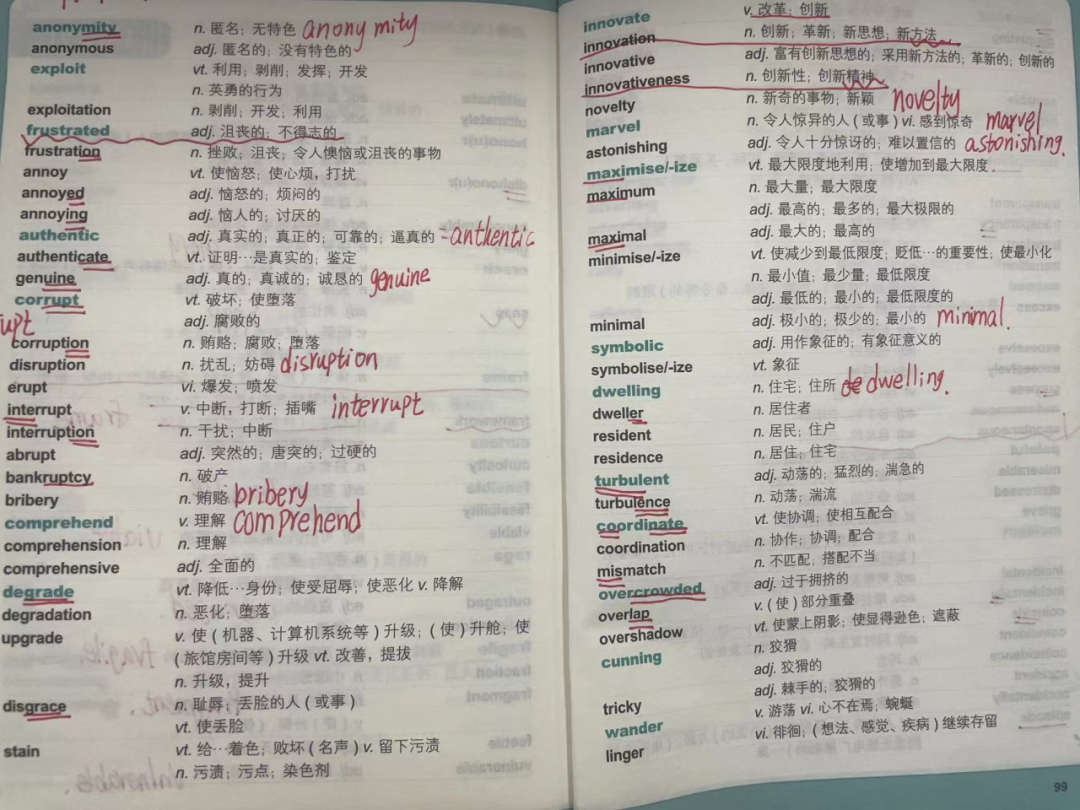 anonymity n. 匿名；无特色 anonymity
anonymous adj. 匿名的；没有特色的
exploit vt. 利用；剥削；发挥；开发
n. 英勇的行为
exploitation n. 剥削；开发；利用
frustrated adj. 沮丧的；不得志的
frustration n. 挫败；沮丧；令人懊恼或沮丧的事物
annoy vt. 使恼怒；使心烦，打扰
annoyed adj. 恼怒的；烦闷的
annoying adj. 恼人的；讨厌的
authentic adj. 真实的；真正的；可靠的；逼真的 anthentic
authenticate vt. 证明…是真实的；鉴定
genuine adj. 真的；真诚的；诚恳的 genuine
corrupt vt. 破坏；使堕落
upt adj. 腐败的
corruption n. 贿赂；腐败；堕落
disruption n. 扰乱；妨碍 disruption
erupt vi. 爆发；喷发
interrupt v. 中断，打断；插嘴 interrupt
interruption n. 干扰；中断
abrupt adj. 突然的；唐突的；过硬的
bankruptcy n. 破产
bribery n. 贿赂 bribery
comprehend v. 理解 comprehend
comprehension n. 理解
comprehensive adj. 全面的
degrade vt. 降低…身份；使受屈辱；使恶化 v. 降解
degradation n. 恶化；堕落
upgrade v. 使（机器、计算机系统等）升级；（使）升舱；使
（旅馆房间等）升级 vt. 改善，提拔
n. 升级，提升
disgrace n. 耻辱；丢脸的人（或事）
vt. 使丢脸
stain vt. 给…着色；败坏（名声）v. 留下污渍
n. 污渍；污点；染色剂
innovate v. 改革；创新
innovation n. 创新；革新；新思想；新方法
innovative adj. 富有创新思想的；采用新方法的；革新的；创新的
innovativeness n. 创新性；创新精神
novelty n. 新奇的事物；新颖 novelty
marvel n. 令人惊异的人（或事）vi. 感到惊奇 marvel
astonishing adj. 令人十分惊讶的；难以置信的 astonishing.
maximise/-ize vt. 最大限度地利用；使增加到最大限度
maximum n. 最大量；最大限度
adj. 最高的；最多的；最大极限的
maximal adj. 最大的；最高的
minimise/-ize vt. 使减少到最低限度；贬低…的重要性；使最小化
n. 最小值；最少量；最低限度
adj. 最低的；最小的；最低限度的
minimal adj. 极小的；极少的；最小的 minimal.
symbolic adj. 用作象征的；有象征意义的
symbolise/-ize vt. 象征
dwelling n. 住宅；住所 dwelling.
dweller n. 居住者
resident n. 居民；住户
residence n. 居住；住宅
turbulent adj. 动荡的；猛烈的；湍急的
turbulence n. 动荡；湍流
coordinate vt. 使协调；使相互配合
coordination n. 协作；协调；配合
mismatch n. 不匹配；搭配不当
overcrowded adj. 过于拥挤的
overlap v.（使）部分重叠
overshadow vt. 使蒙上阴影；使显得逊色；遮蔽
cunning n. 狡猾
adj. 狡猾的
tricky adj. 棘手的；狡猾的
wander v. 游荡 vi. 心不在焉；蜿蜒
linger vi. 徘徊；（想法、感觉、疾病）继续存留
99